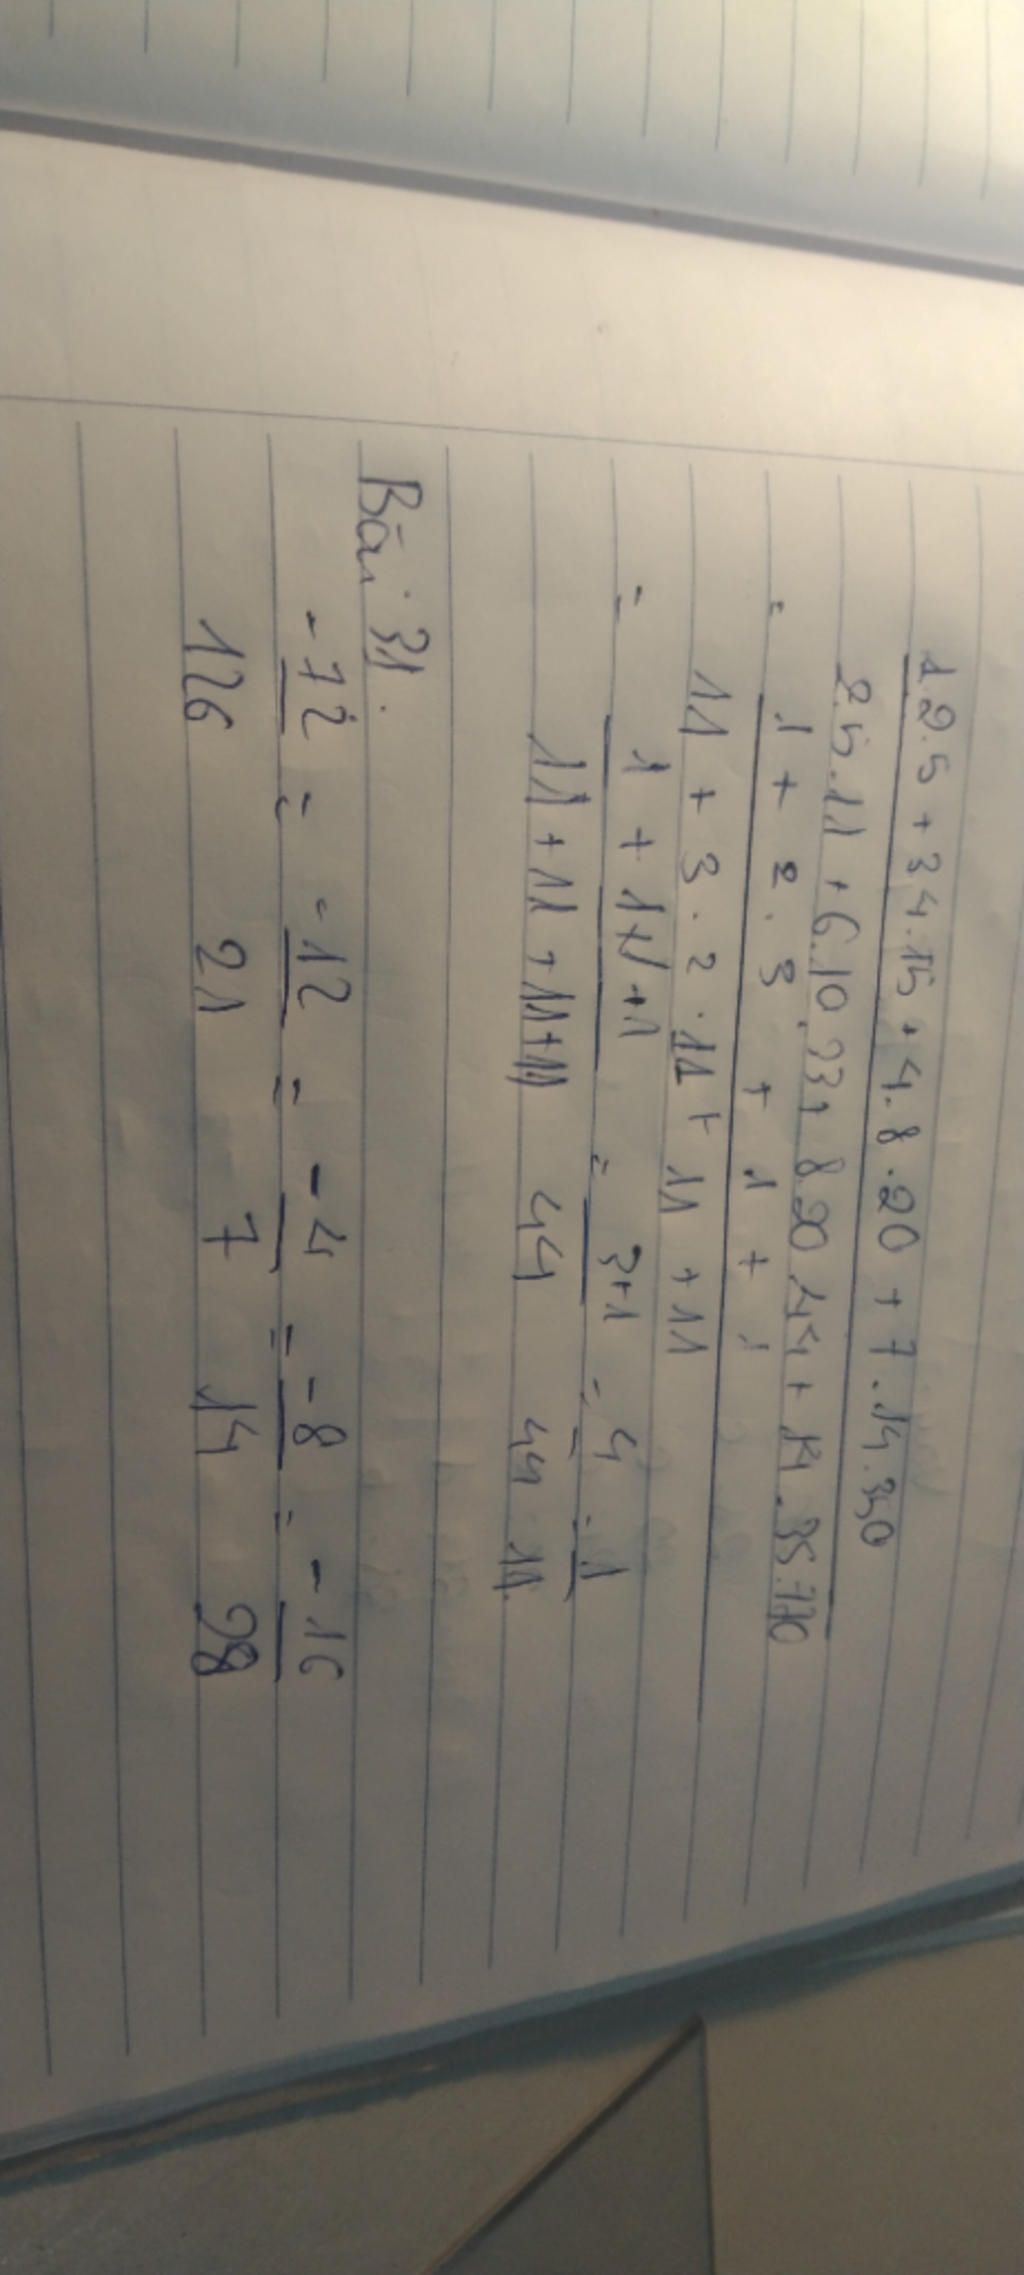 1.2.5 + 3 4.15 + 4.8.20 + 7.14.350
2.5.11 + 6.10.33+ 8 20 44+ 14.35.770
= 1 + 2 . 3 + 1 + 1
11 + 3 . 2 . 11 + 11 + 11
= 1 + 1+1 +1 = 3+1 = 4 = 1
11 + 11 + 11+11 44 44 11.
Bài 31.
-72 = -12 = -4 = -8 = -16
126 21 7 14 28